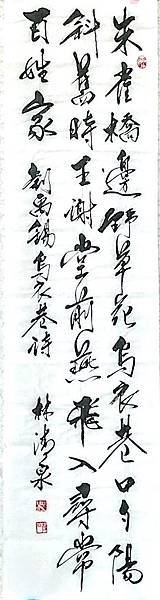 朱雀橋邊野草花烏衣巷口夕陽
斜舊時王謝堂前燕飛入尋常
百姓家 劉禹錫烏衣巷詩